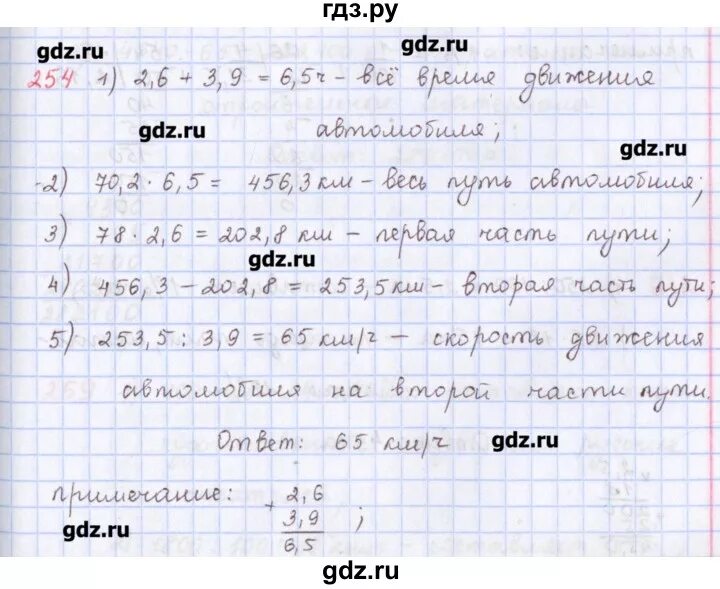 гдз.ру
gdz.ru
gdz.ru
254 1) 2,6 + 3,9 = 6,5ч - всё время движения
gdz.ru
автомобиля;
gdz.ru
2) 70,2 · 6,5 = 456,3 км - весь путь автомобиля;
3) 78 · 2,6 = 202,8 км - первая часть пути;
gdz.ru
4) 456,3 - 202,8 = 253,5 км - вторая часть пути;
5) 253,5 : 3,9 = 65 км/ч - скорость движения
автомобиля на второй части пути.
Ответ: 65 км/ч
gdz.ru
примечание: + 2,6
3,9 ;
6,5
gdz.ru
gdz.ru